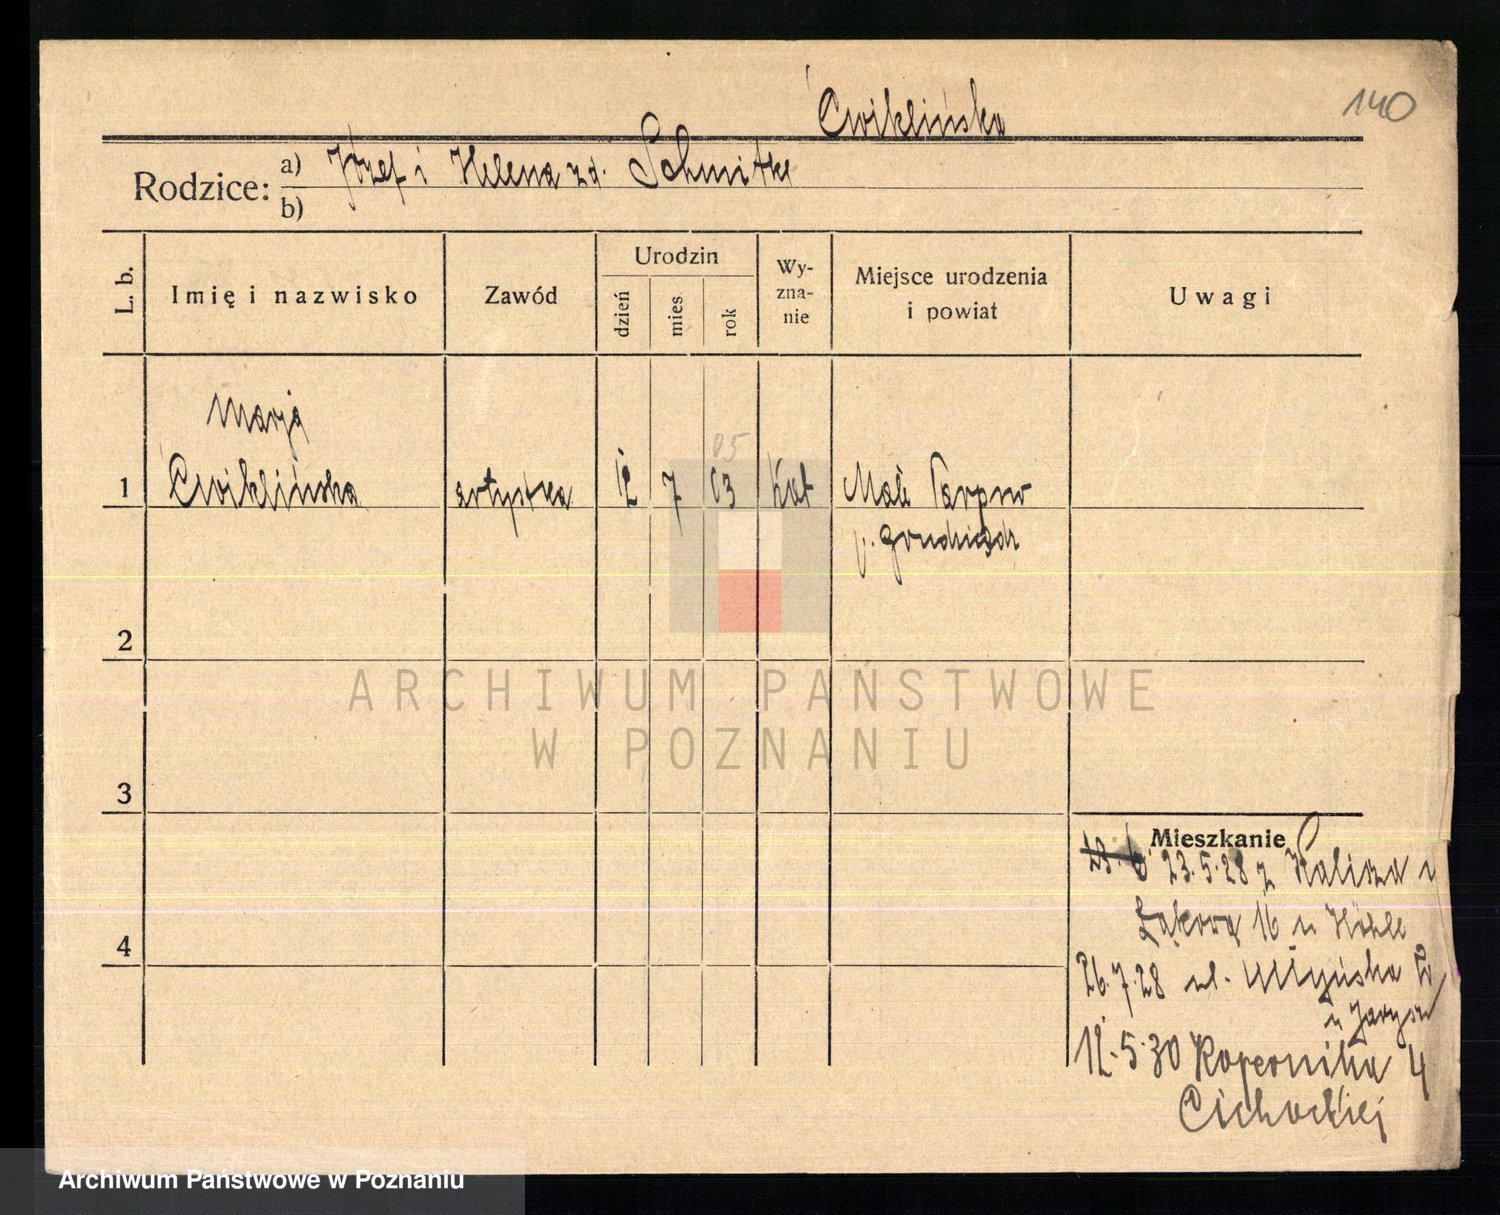 Ćwiklińska
140
Rodzice: a) Józef i Helena zd. Schmitke
b)
L. b.
Imię i nazwisko
Zawód
Urodzin
dzień
mies
rok
Wy-
zna-
nie
Miejsce urodzenia
i powiat
Uwagi
Marja
05
1 Ćwiklińska artystka 12 7 03 Kat Małe Tarpno
p. Grudziądz
2
ARCHIWUM PAŃSTWOWE
W POZNANIU
3
Mieszkanie
23.5.28 z Kalisza
Łąkowa 16 u
26.7.28 ul. Młyńska
u
12.5.30 Kopernika 4
Cichockiej
4
Archiwum Państwowe w Poznaniu